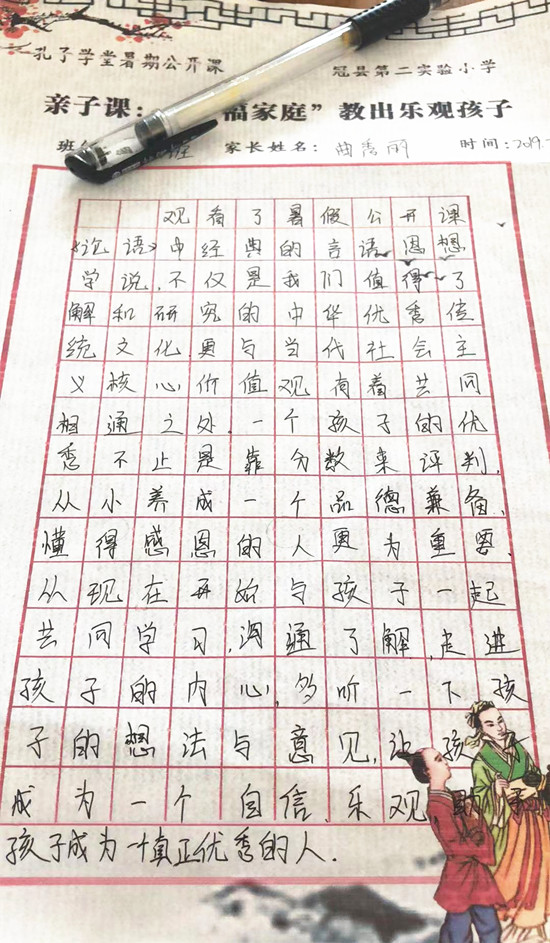 孔子学堂暑期公开课
冠县第二实验小学
亲子课： 福家庭”教出乐观孩子
家长姓名： 曲秀丽 时间：2019.
观看了暑假公开课
《论语》中经典的言语思想
学说，不仅是我们值得了
解和研究的中华优秀传
统文化，更与当代社会主
义核心价值观有着共同
相通之处，一个孩子的优
秀不止是靠分数来评判，
从小养成一个品德兼备，
懂得感恩的人更为重要，
从现在开始与孩子一起
共同学习，沟通了解，走进
孩子的内心，多听一下孩
子的想法与意见，让孩子
成为一个自信，乐观，
孩子成为一个真正优秀的人．